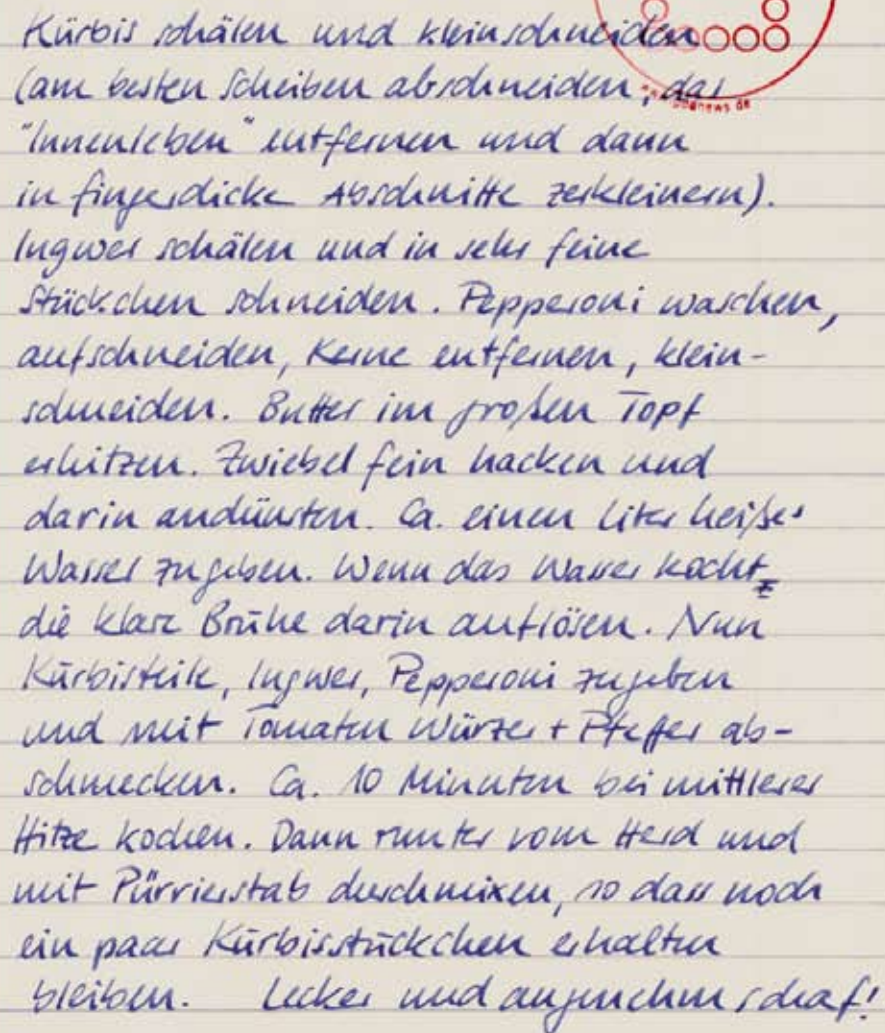 Kürbis schälen und kleinschneiden
(am besten Scheiben abschneiden, das
"Innenleben" entfernen und dann
in fingerdicke Abschnitte zerkleinern).
Ingwer schälen und in sehr feine
Stückchen schneiden. Pepperoni waschen,
aufschneiden, Kerne entfernen, klein-
schneiden. Butter im großen Topf
erhitzen. Zwiebel fein hacken und
darin andünsten. Ca. einen Liter heißes
Wasser zugeben. Wenn das Wasser kocht,
die klare Brühe darin auflösen. Nun
Kürbisteile, Ingwer, Pepperoni zugeben
und mit Tomaten Würzer + Pfeffer ab-
schmecken. Ca. 10 Minuten bei mittlerer
Hitze kochen. Dann runter vom Herd und
mit Pürrierstab durchmixen, so dass noch
ein paar Kürbisstückchen erhalten
bleiben. Lecker und angenehm scharf!